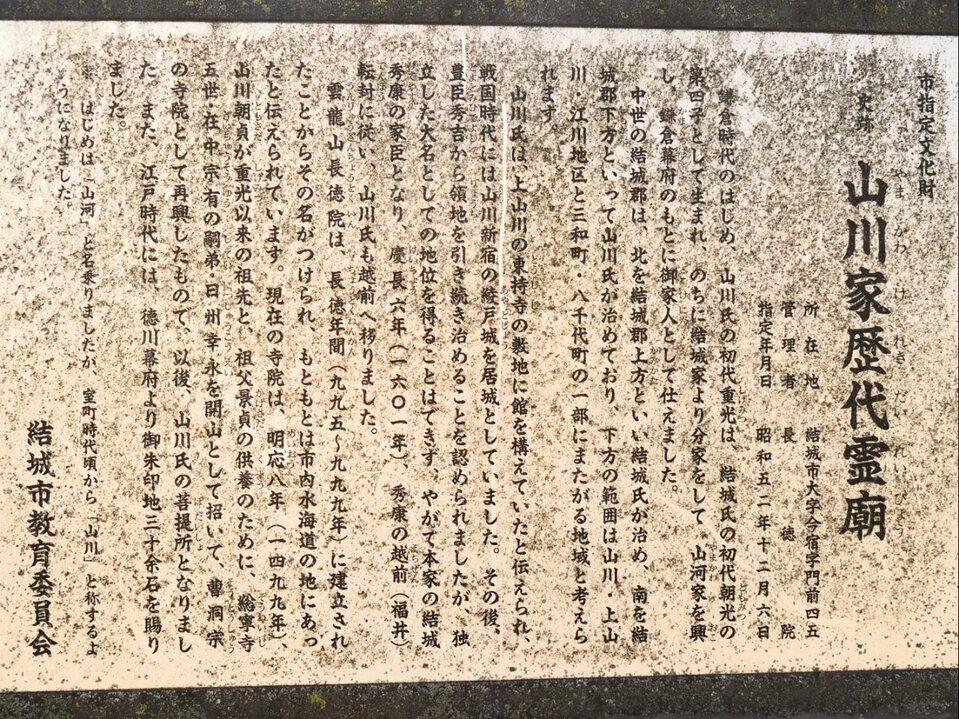 市指定文化財
史跡
山川家歴代霊廟
やまかわけれきだいれいびょう
所在地 結城市大字今宿字門前四五
管理者 長徳院
指定年月日 昭和五二年十二月六日
鎌倉時代のはじめ、山川氏の初代重光は、結城氏の初代朝光の
第四子として生まれ、のちに結城家より分家をして、山河家を興
し、鎌倉幕府のもとに御家人として仕えました。
中世の結城郡は、北を結城郡上方といい結城氏が治め、南を結
城郡下方といって山川氏が治めており、下方の範囲は山川・上山
川・江川地区と三和町・八千代町の一部にまたがる地域と考えら
れます。
山川氏は、上山川の東持寺の敷地に館を構えていたと伝えられ、
戦国時代には山川新宿の綾戸城を居城としていました。その後、
豊臣秀吉から領地を引き続き治めることを認められましたが、独
立した大名としての地位を得ることはできず、やがて本家の結城
秀康の家臣となり、慶長六年(一六〇一年)、秀康の越前(福井)
転封に従い、山川氏も越前へ移りました。
雲龍山長徳院は、長徳年間(九九五〜九九九年)に建立され
たことからその名がつけられ、もともとは市内水海道の地にあっ
たと伝えられています。現在の寺院は、明応八年(一四九九年)、
山川朝貞が重光以来の祖先と、祖父景貞の供養のために、総寧寺
五世・在中宗有の嗣弟・日州幸永を開山として招いて、曹洞宗
の寺院として再興したもので、以後、山川氏の菩提所となりまし
た。また、江戸時代には、徳川幕府より御朱印地三十余石を賜り
ました。
※ はじめは「山河」と名乗りましたが、室町時代頃から「山川」と称するよ
うになりました。
結城市教育委員会